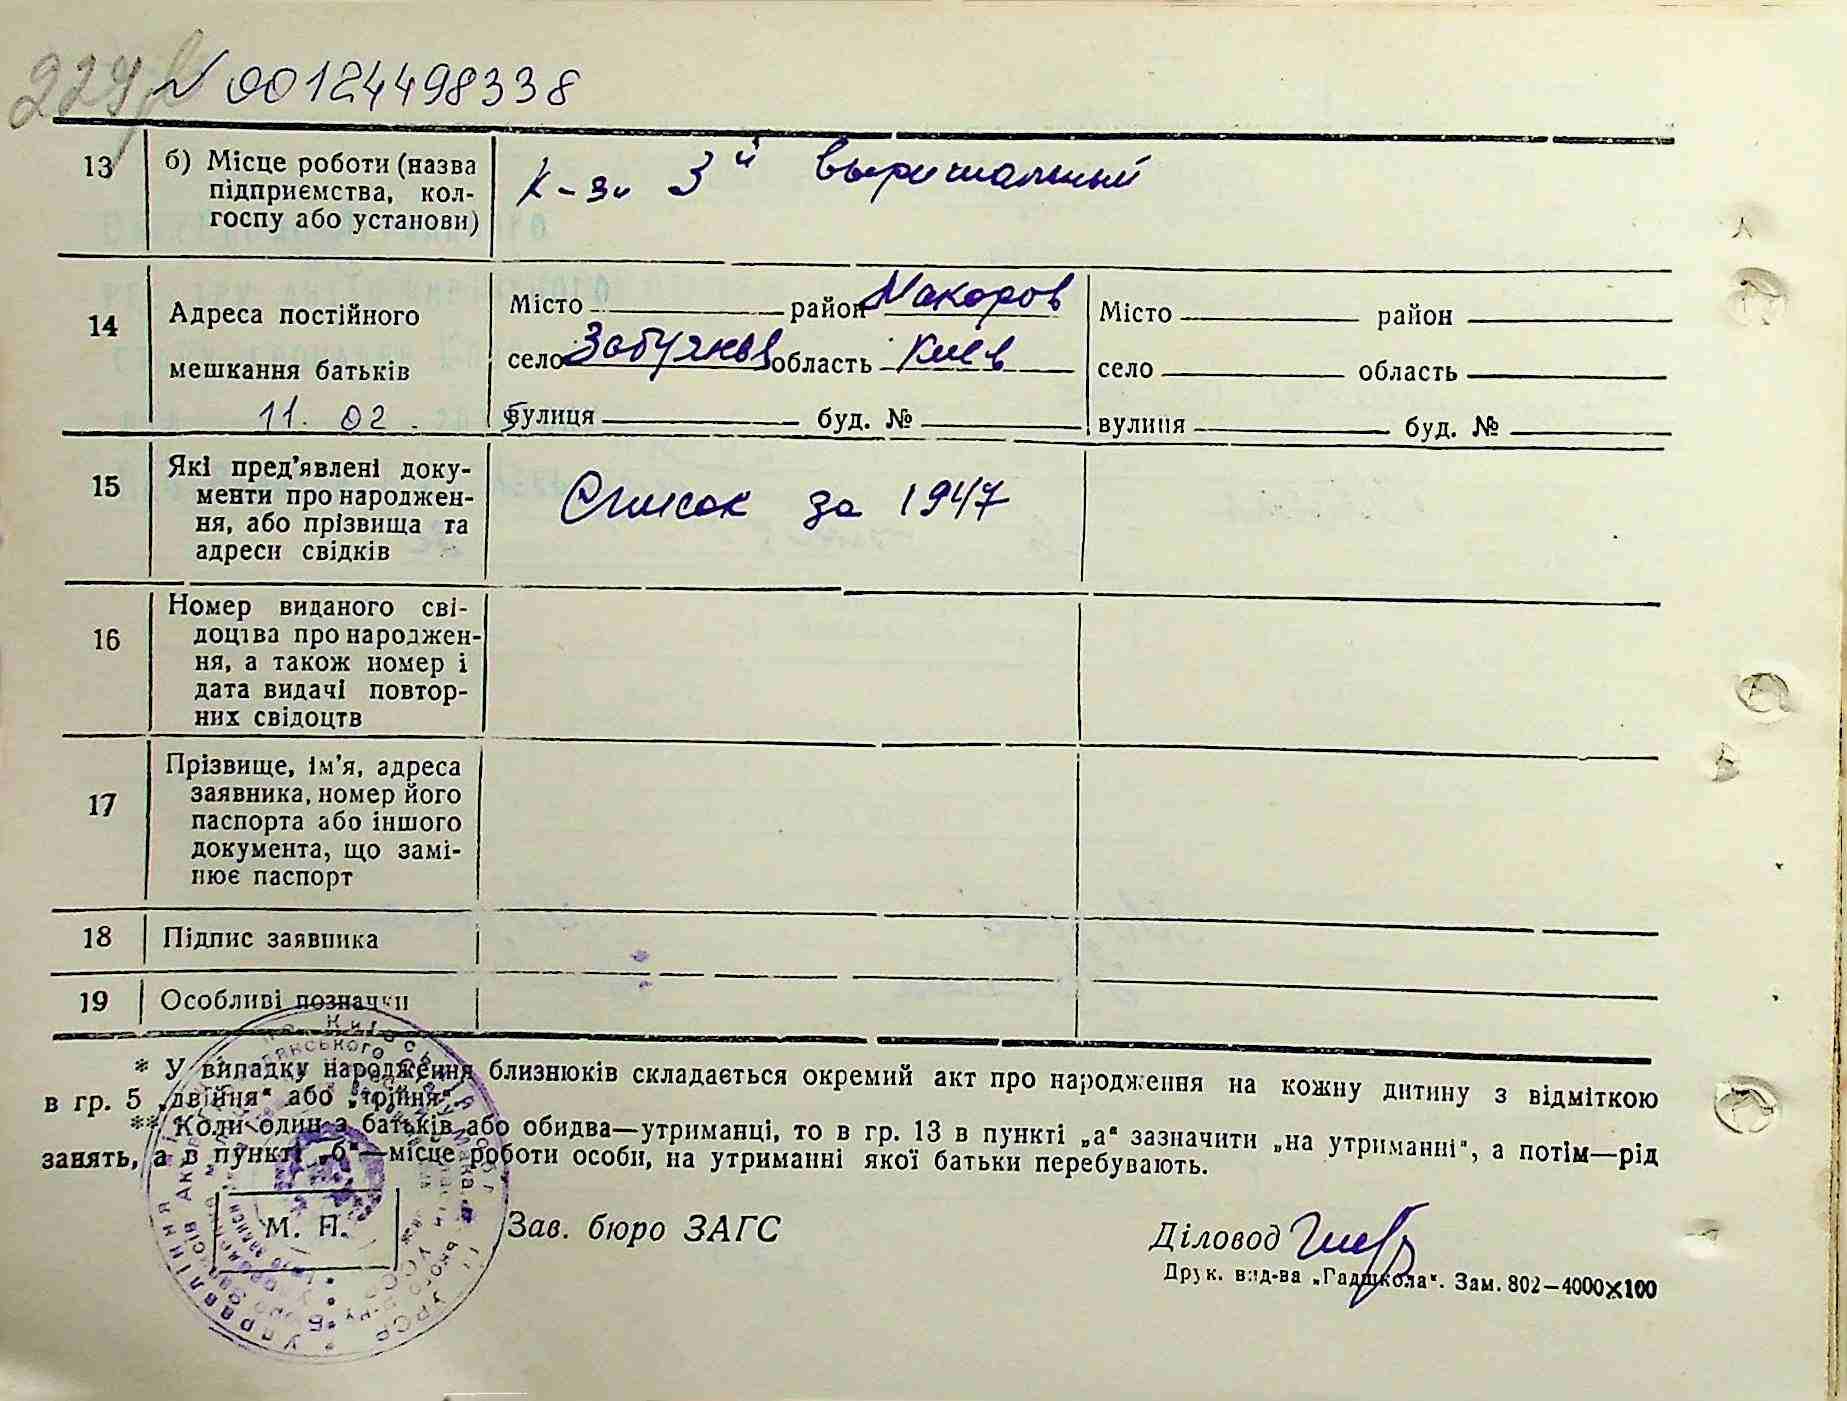 229
N 00124498338
13 б) Місце роботи (назва
підприємства, кол-
госпу або установи)
к-з 3й выришальный
14 Адреса постійного
мешкання батьків
11. 02.
Місто район Макаров
село Забуяння область Киев
вулиця буд. №
Місто район
село область
вулиця буд. №
15 Які пред'явлені доку-
менти про народжен-
ня, або прізвища та
адреси свідків
Список за 1947
16 Номер виданого сві-
доцтва про народжен-
ня, а також номер і
дата видачі повтор-
них свідоцтв
17 Прізвище, ім'я, адреса
заявника, номер його
паспорта або іншого
документа, що замі-
нює паспорт
18 Підпис заявника
19 Особливі позначки
* У випадку народження близнюків складається окремий акт про народження на кожну дитину з відміткою
в гр. 5 „двійня“ або „трійня“.
** Коли один з батьків або обидва—утриманці, то в гр. 13 в пункті „а“ зазначити „на утриманні“, а потім—рід
занять, а в пункті „б“—місце роботи особи, на утриманні якої батьки перебувають.
М. П.
Зав. бюро ЗАГС
Діловод
Друк. вид-ва „Радшкола“. Зам. 802—4000×100